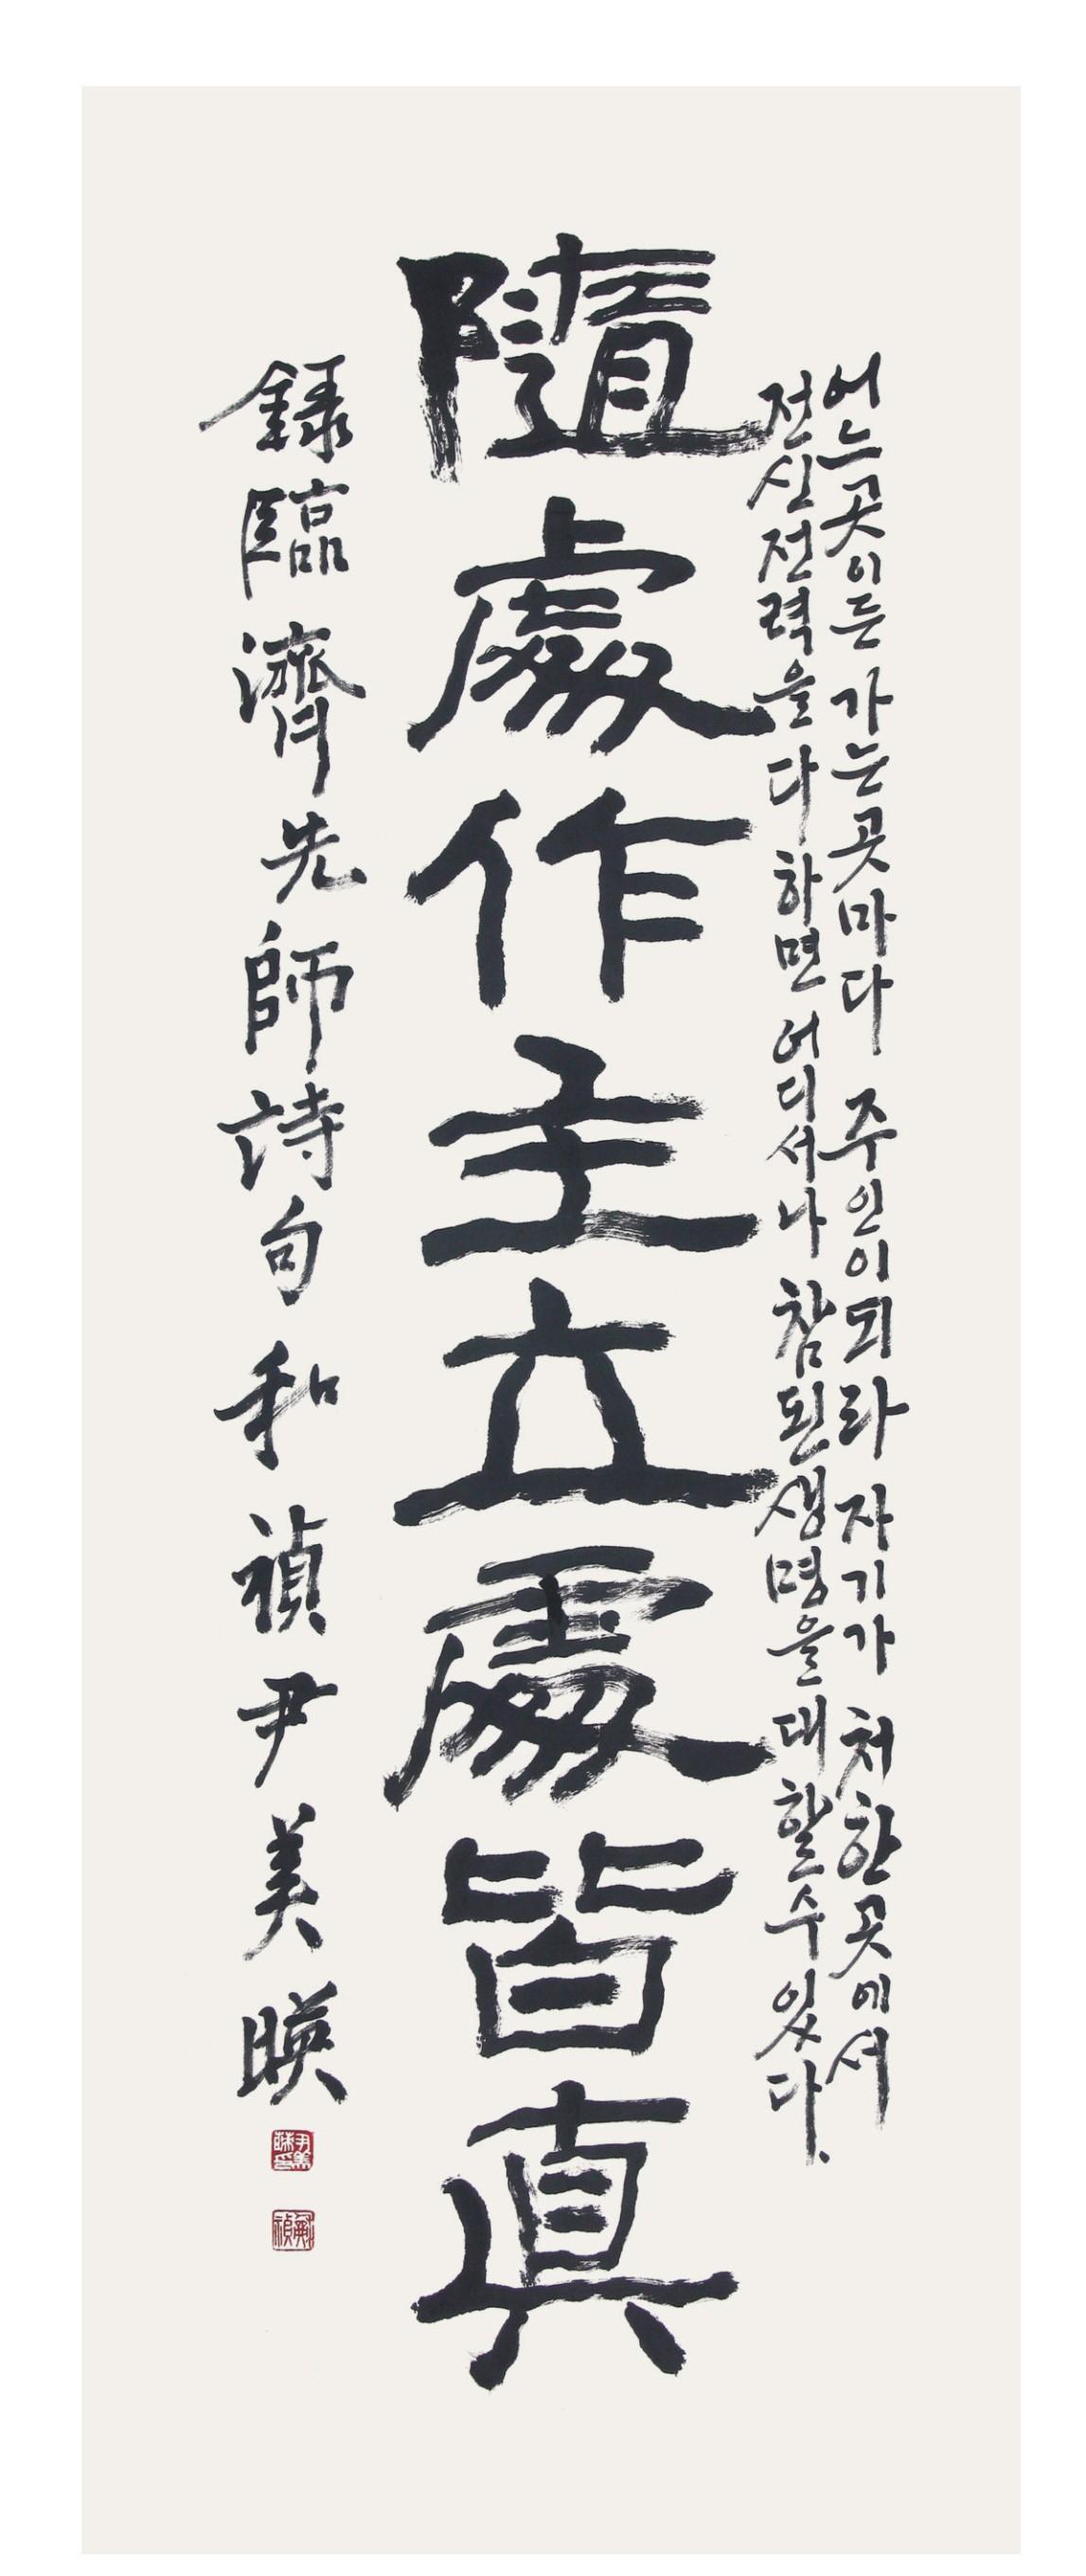 어느곳이든 가는곳마다 주인이되라 자기가 처한곳에서
전신전력을다하면 어디서나 참된생명을대할수있다.
隨處作主立處皆眞
錄臨濟先師詩句 和禎 尹美暎